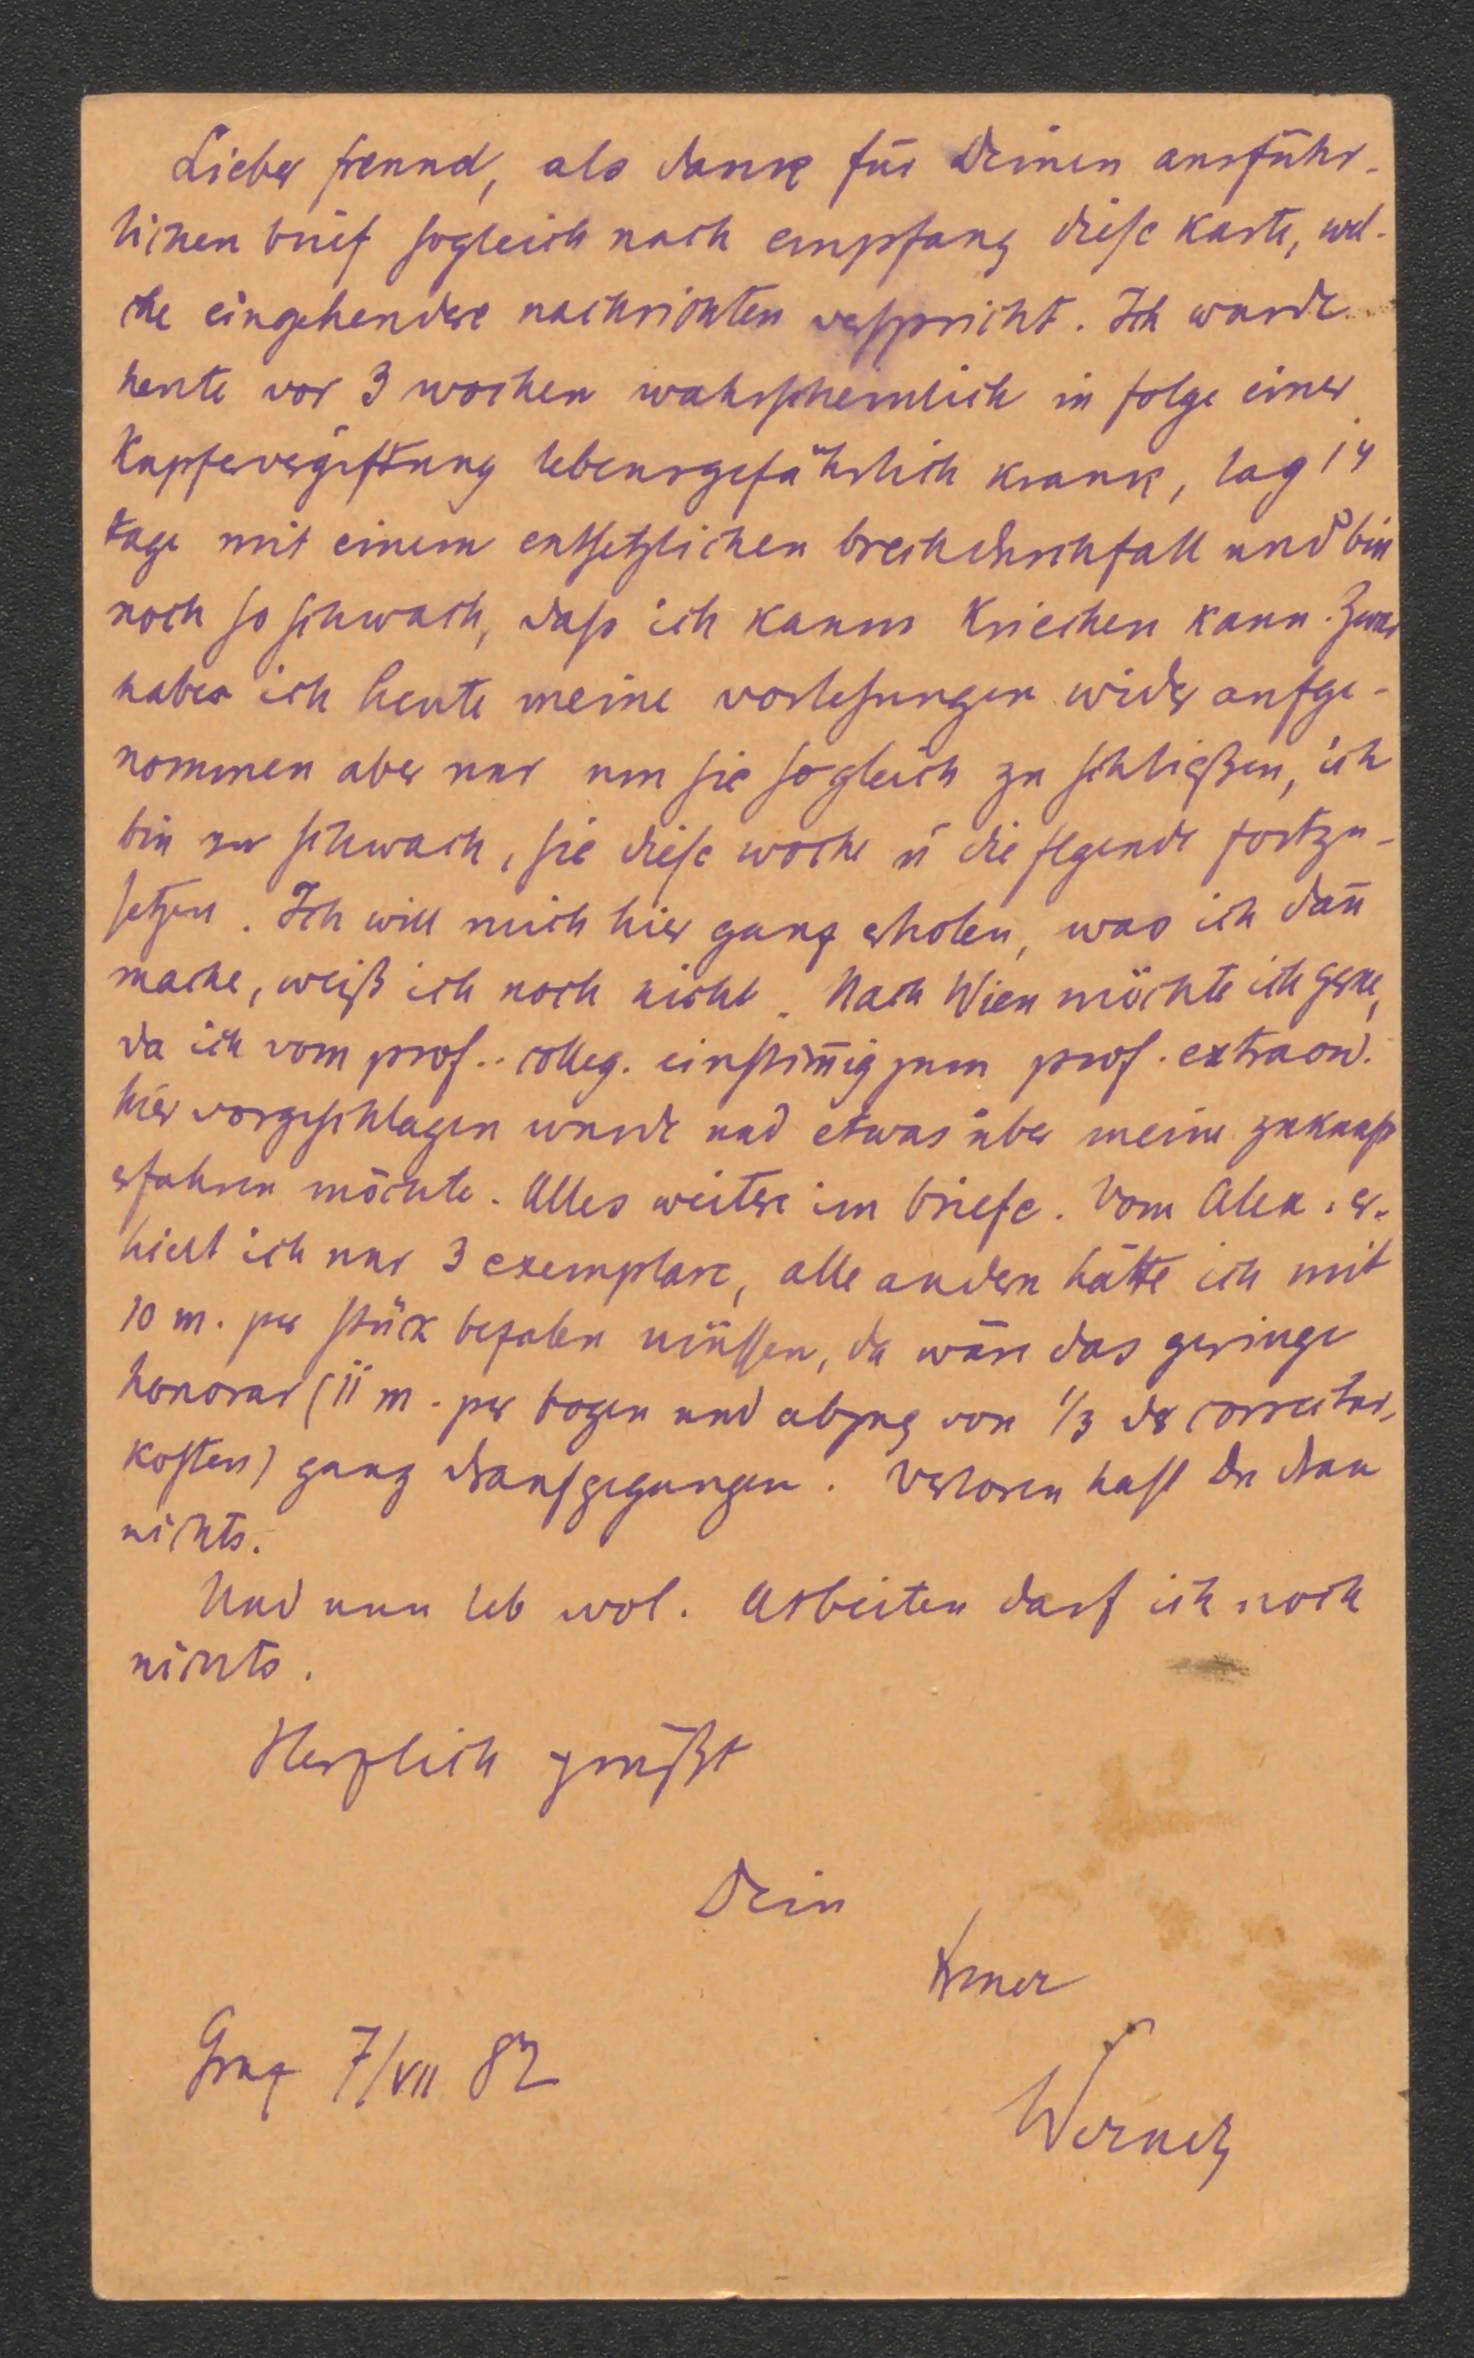 Lieber freund, als dank für Deinen ausführ-
lichen brief sogleich nach empfang diese karte, wel-
che eingehendere nachrichten verspricht. Ich wurde
heute vor 3 wochen wahrscheinlich in folge einer
Kupfervergiftung lebensgefährlich krank, lag 14
tage mit einem entsetzlichen brechdurchfall und bin
noch so schwach, dass ich kaum kriechen kann. Zwar
habe ich heute meine vorlesungen wider aufge-
nommen aber nur um sie sogleich zu schließen, ich
bin zu schwach, sie diese woche u die flgende fortzu-
setzen. Ich will mich hier ganz erholen, was ich dañ
mache, weiß ich noch nicht. Nach Wien möchte ich gerne,
da ich vom prof.. colleg. einstim̄ig zum prof. extraord.
hier vorgeschlagen wurde und etwas über meine zukunft
erfahren möchte. Alles weitere im briefe. Vom Alex. er-
hielt ich nur 3 exemplare, alle andern hätte ich mit
10 m. per stück bezalen müssen, da wäre das geringe
honorar (11 m. per bogen und abzug von 1/3 der correctur,
kosten) ganz draufgegangen. Verloren hast Du dran
nichts.
Und nun leb wol. Arbeiten darf ich noch
nichts.
Herzlich grüßt
Dein
treuer
Graz 7/VII 82
Werner